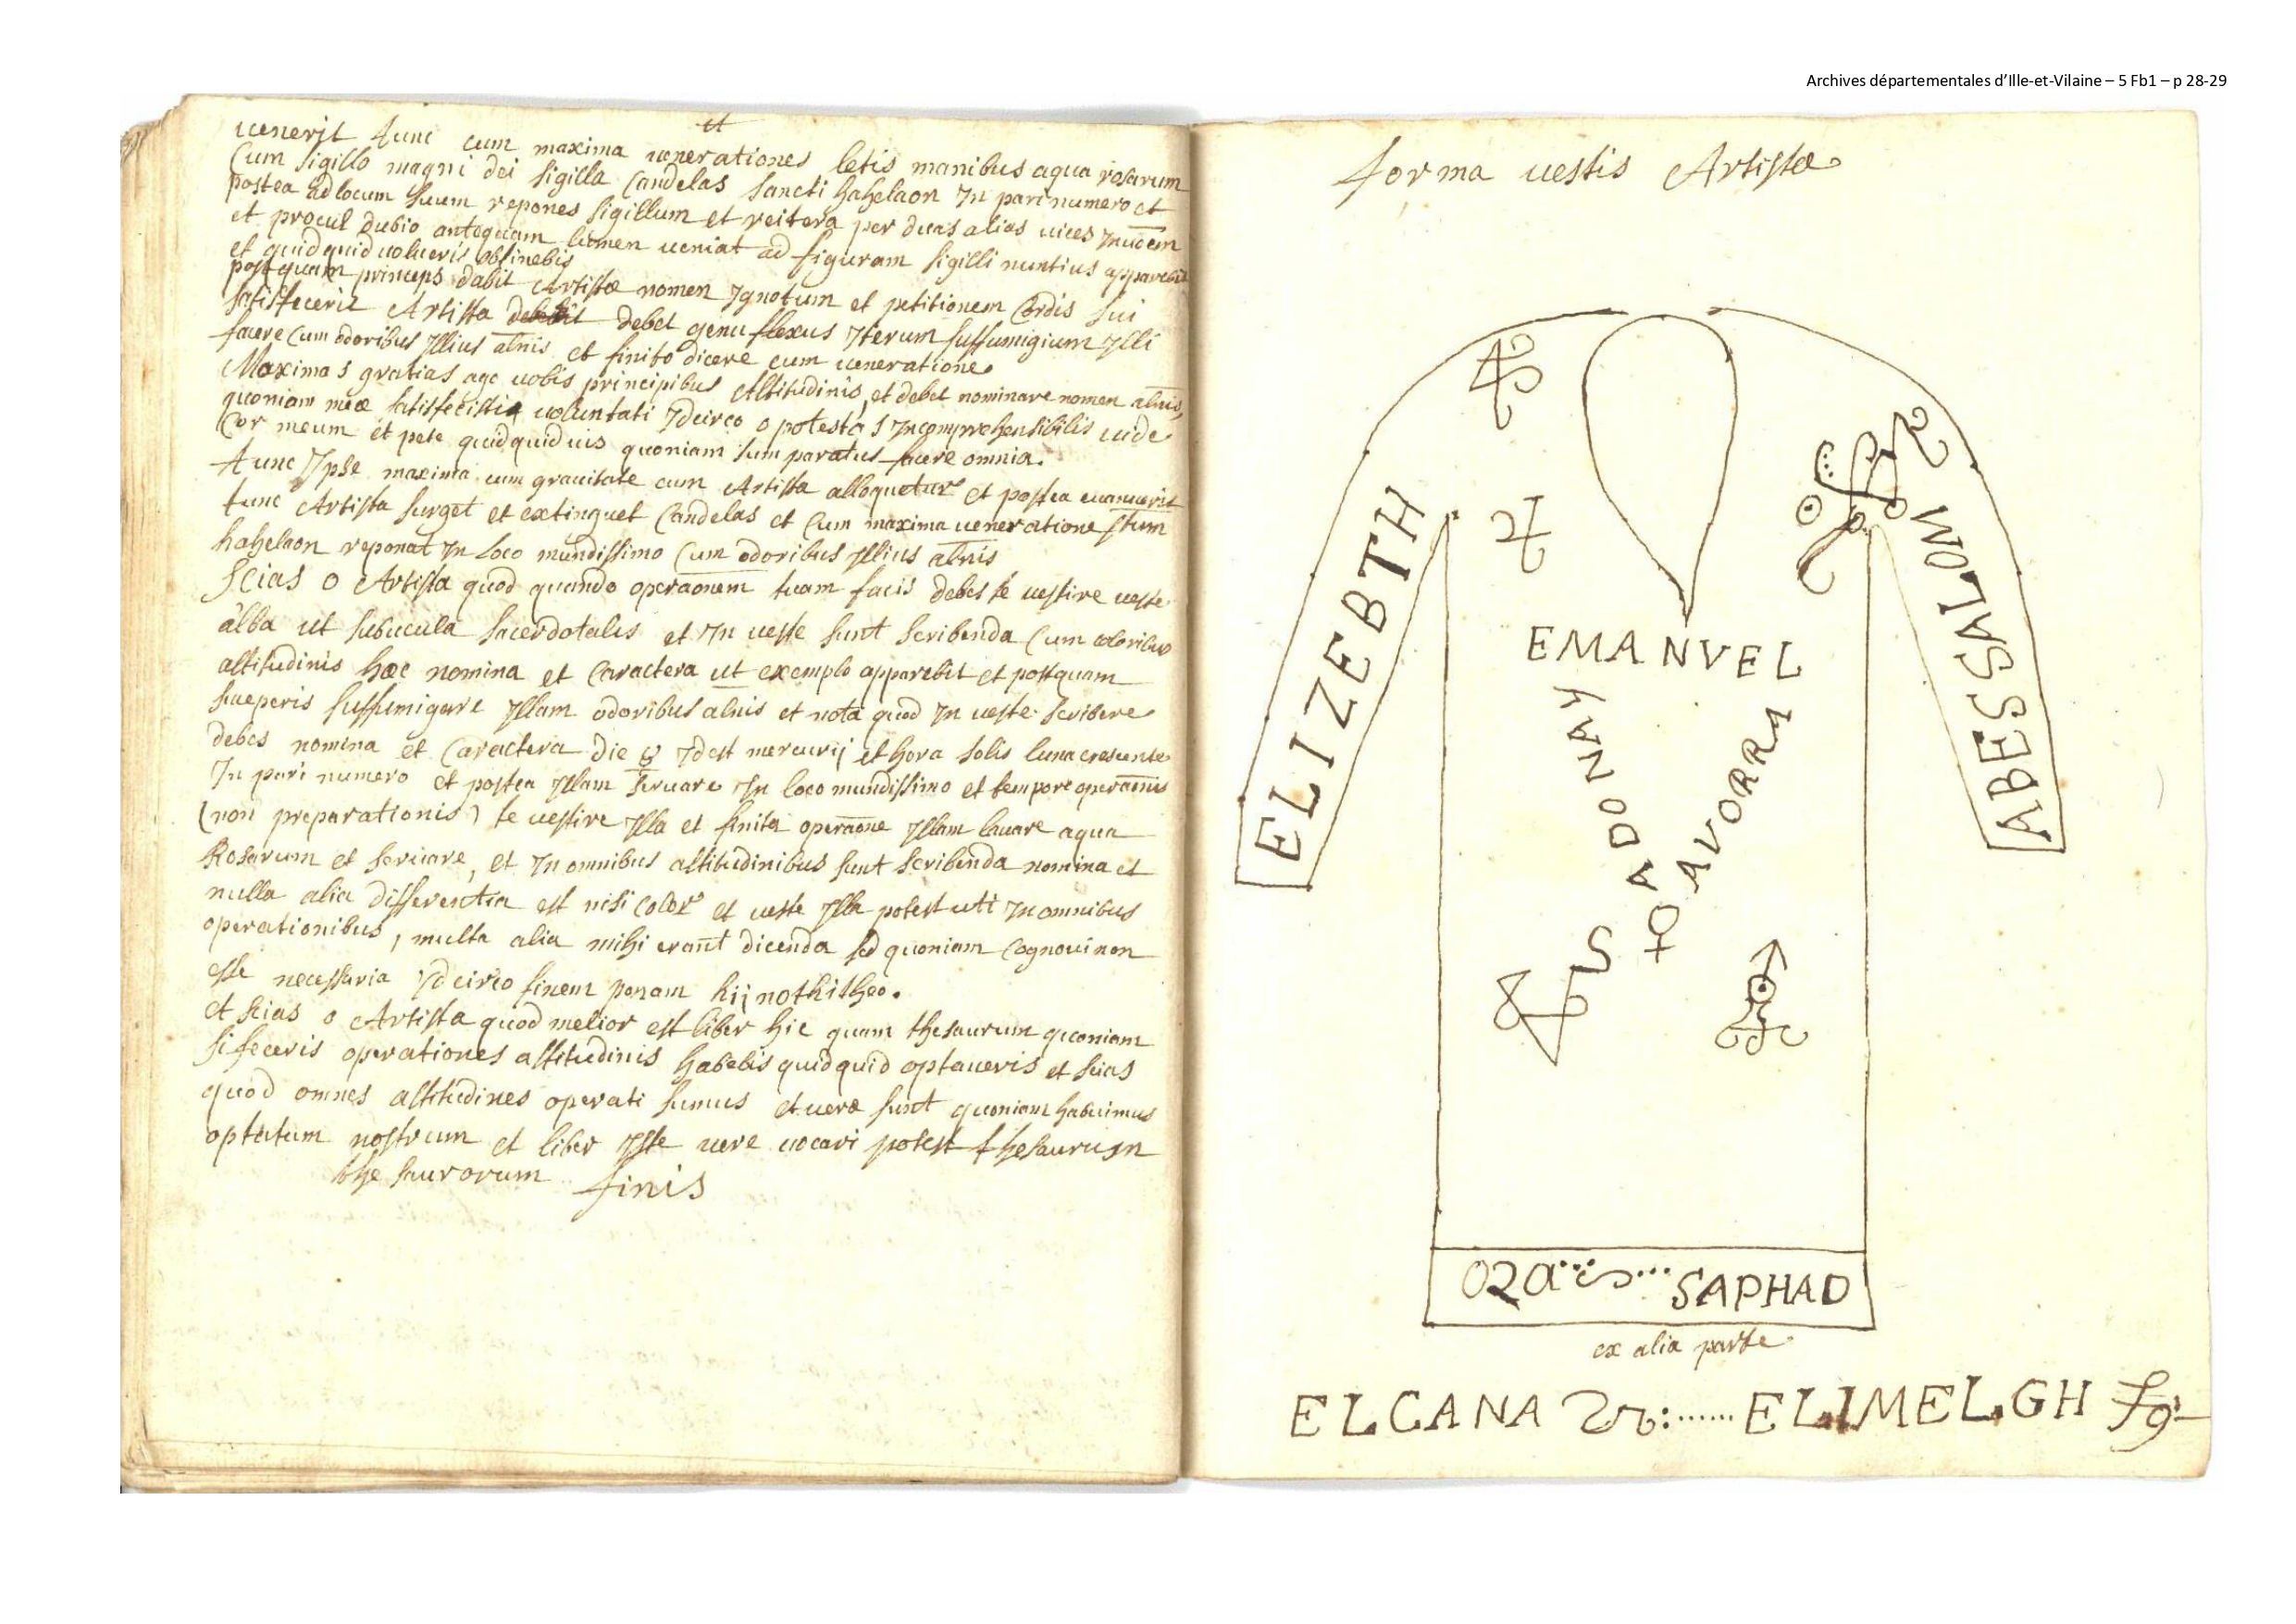 Archives départementales d'Ille-et-Vilaine – 5 Fb1 – p 28-29
et
uenerit tunc cum maxima uenerationes letis manibus aqua rosarum
Cum sigillo magni dei sigilla Candelas sancti hahelaon In pari numero et
postea ad locum suum repones sigillum et reitera per duas alias uices
et procul dubio antequam lumen ueniat ad figuram sigilli nuntius apparebit
et quidquid uolueris obtinebis
postquam princeps dabit Artistæ nomen Ignotum et petitionem Cordis sui
satisfecerit Artista debet genu flexus Iterum suffumigium Illi
facere Cum odoribus Illius altnis et finito dicere cum ueneratione
Maximas gratias ago uobis principibus Altitudinis, et debet nominare nomen altnis,
quoniam meæ satisfecistis uoluntati Idcirco o potestas Incomprehensibilis uide
Cor meum et pete quidquid uis quoniam sum paratus facere omnia.
tunc Ipse maxima cum grauitate cum Artista alloquetur et postea euanuerit
tunc Artista surget et extinguet Candelas et Cum maxima ueneratione stum
hahelaon reponat In loco mundissimo Cum odoribus Illius altnis
Scias o Artista quod quando operaonem tuam facis debes te uestire ueste
alba ut subucula sacerdotalis et In ueste sunt scribenda Cum coloribus
altitudinis hæc nomina et Caractera ut exemplo apparebit et postquam
suffumigare Illam odoribus altnis et nota quod In ueste scribere
debes nomina et Caractera Die ☿ Idest mercurij et hora solis luna crescente
In pari numero et postea Illam seruare In loco mundissimo et tempore operaonis
(non preparationis) te uestire Illa et finita operaone Illam lauare aqua
Rosarum et seruare, et In omnibus altitudinibus sunt scribenda nomina et
nulla alia differentia est nisi color et ueste Illa potest uti In omnibus
operationibus, multa alia mihi erant dicenda sed quoniam Cognoui non
esse necessaria Idcirco finem ponam hij nothitheo.
et scias o Artista quod melior est liber hic quam thesaurum quoniam
si feceris operationes altitudinis habebis quidquid optaueris et scias
quod omnes altitudines operati sumus et ueræ sunt quoniam habuimus
optatum nostrum et liber Iste uere uocari potest thesaurum
thesaurorum finis
forma uestis Artistæ
ELIZEBTH
ABESSALOM
EMANVEL
ADONAY
AVORRY
SAPHAD
ex alia parte
ELCANA ELIMELGH